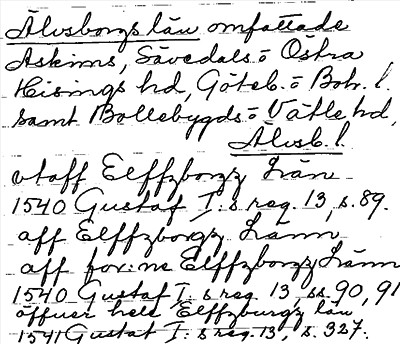 Älvsborgs län omfattade
Askims, Sävedals o Östra
Hisings hd, Göteb. o Boh. l.
samt Bollebygds o Vättle hd,
Älvsb. l.
utaff Elffzborgz Län
1540 Gustaf I:s reg. 13, s. 89.
aff Elffzborgz Länn
aff for:ne Elffzborgz Länn
1540 Gustaf I:s reg. 13, ss. 90, 91
öffuer hele Elffzburgz län
1541 Gustaf I:s reg. 13, s. 327.